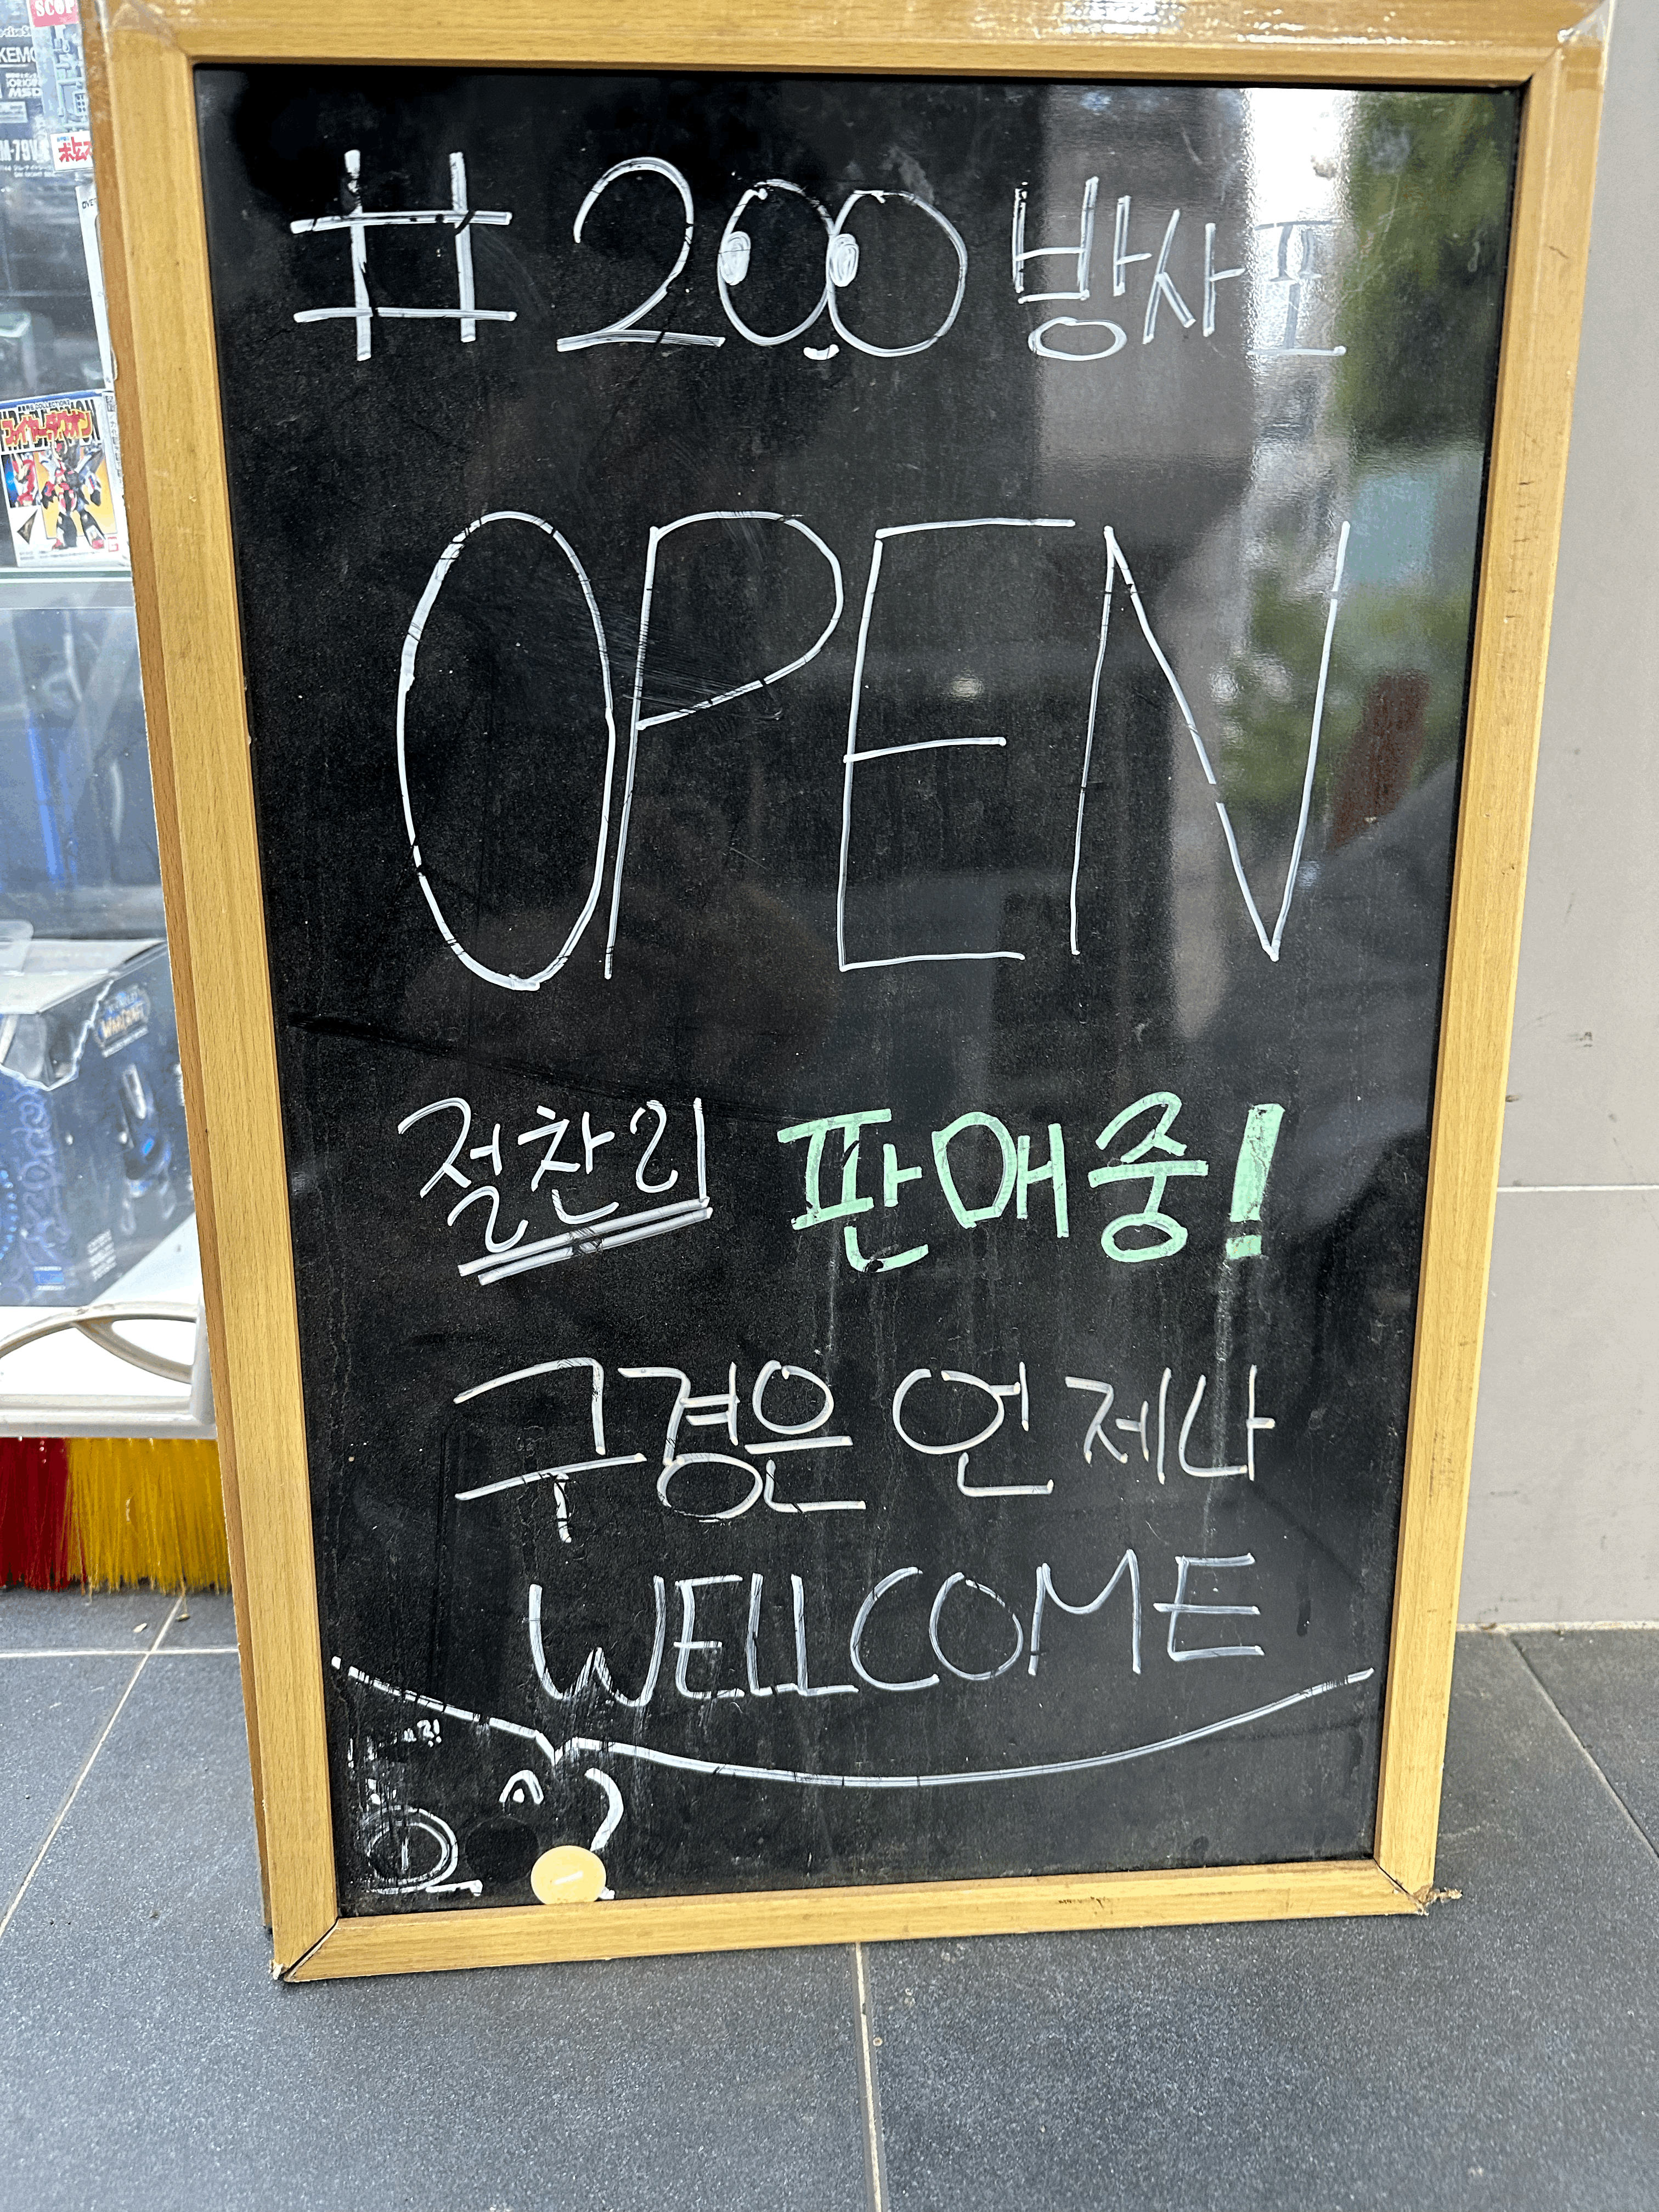 #200 방사포
OPEN
절찬리 판매중!
구경은 언제나
WELLCOME
WARCRAFT